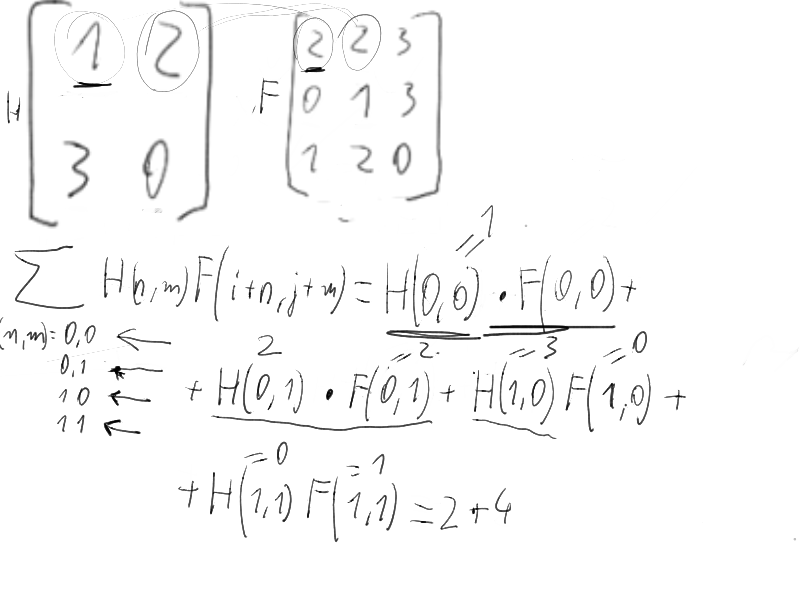 H [1 2
3 0]
F [2 2 3
0 1 3
1 2 0]
=1
∑ H(n,m)F(i+n,j+m)=H(0,0)·F(0,0)+
(n,m)=0,0 ←
2 =2 =3 =0
0,1 ← +H(0,1)·F(0,1)+H(1,0)F(1,0)+
10 ←
11 ←
=0 =1
+H(1,1)F(1,1)=2+4